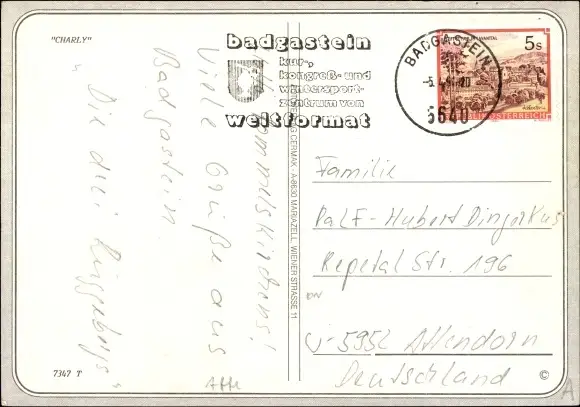 "CHARLY"
badgastein
kur-,
kongreß- und
wintersport-
zentrum von
weltformat
BADGASTEIN
5640
5s
REPUBLIK ÖSTERREICH
Himmelskirchens!
Viele Grüße aus
Badgastein.
" Die drei
CERMAK - A-8630 MARIAZELL, WIENER STRASSE 11
Familie
Ralf-Hubert Dingerkus
Repetal Str. 196
5952 Attendorn
Deutschland
7347 T
©
A